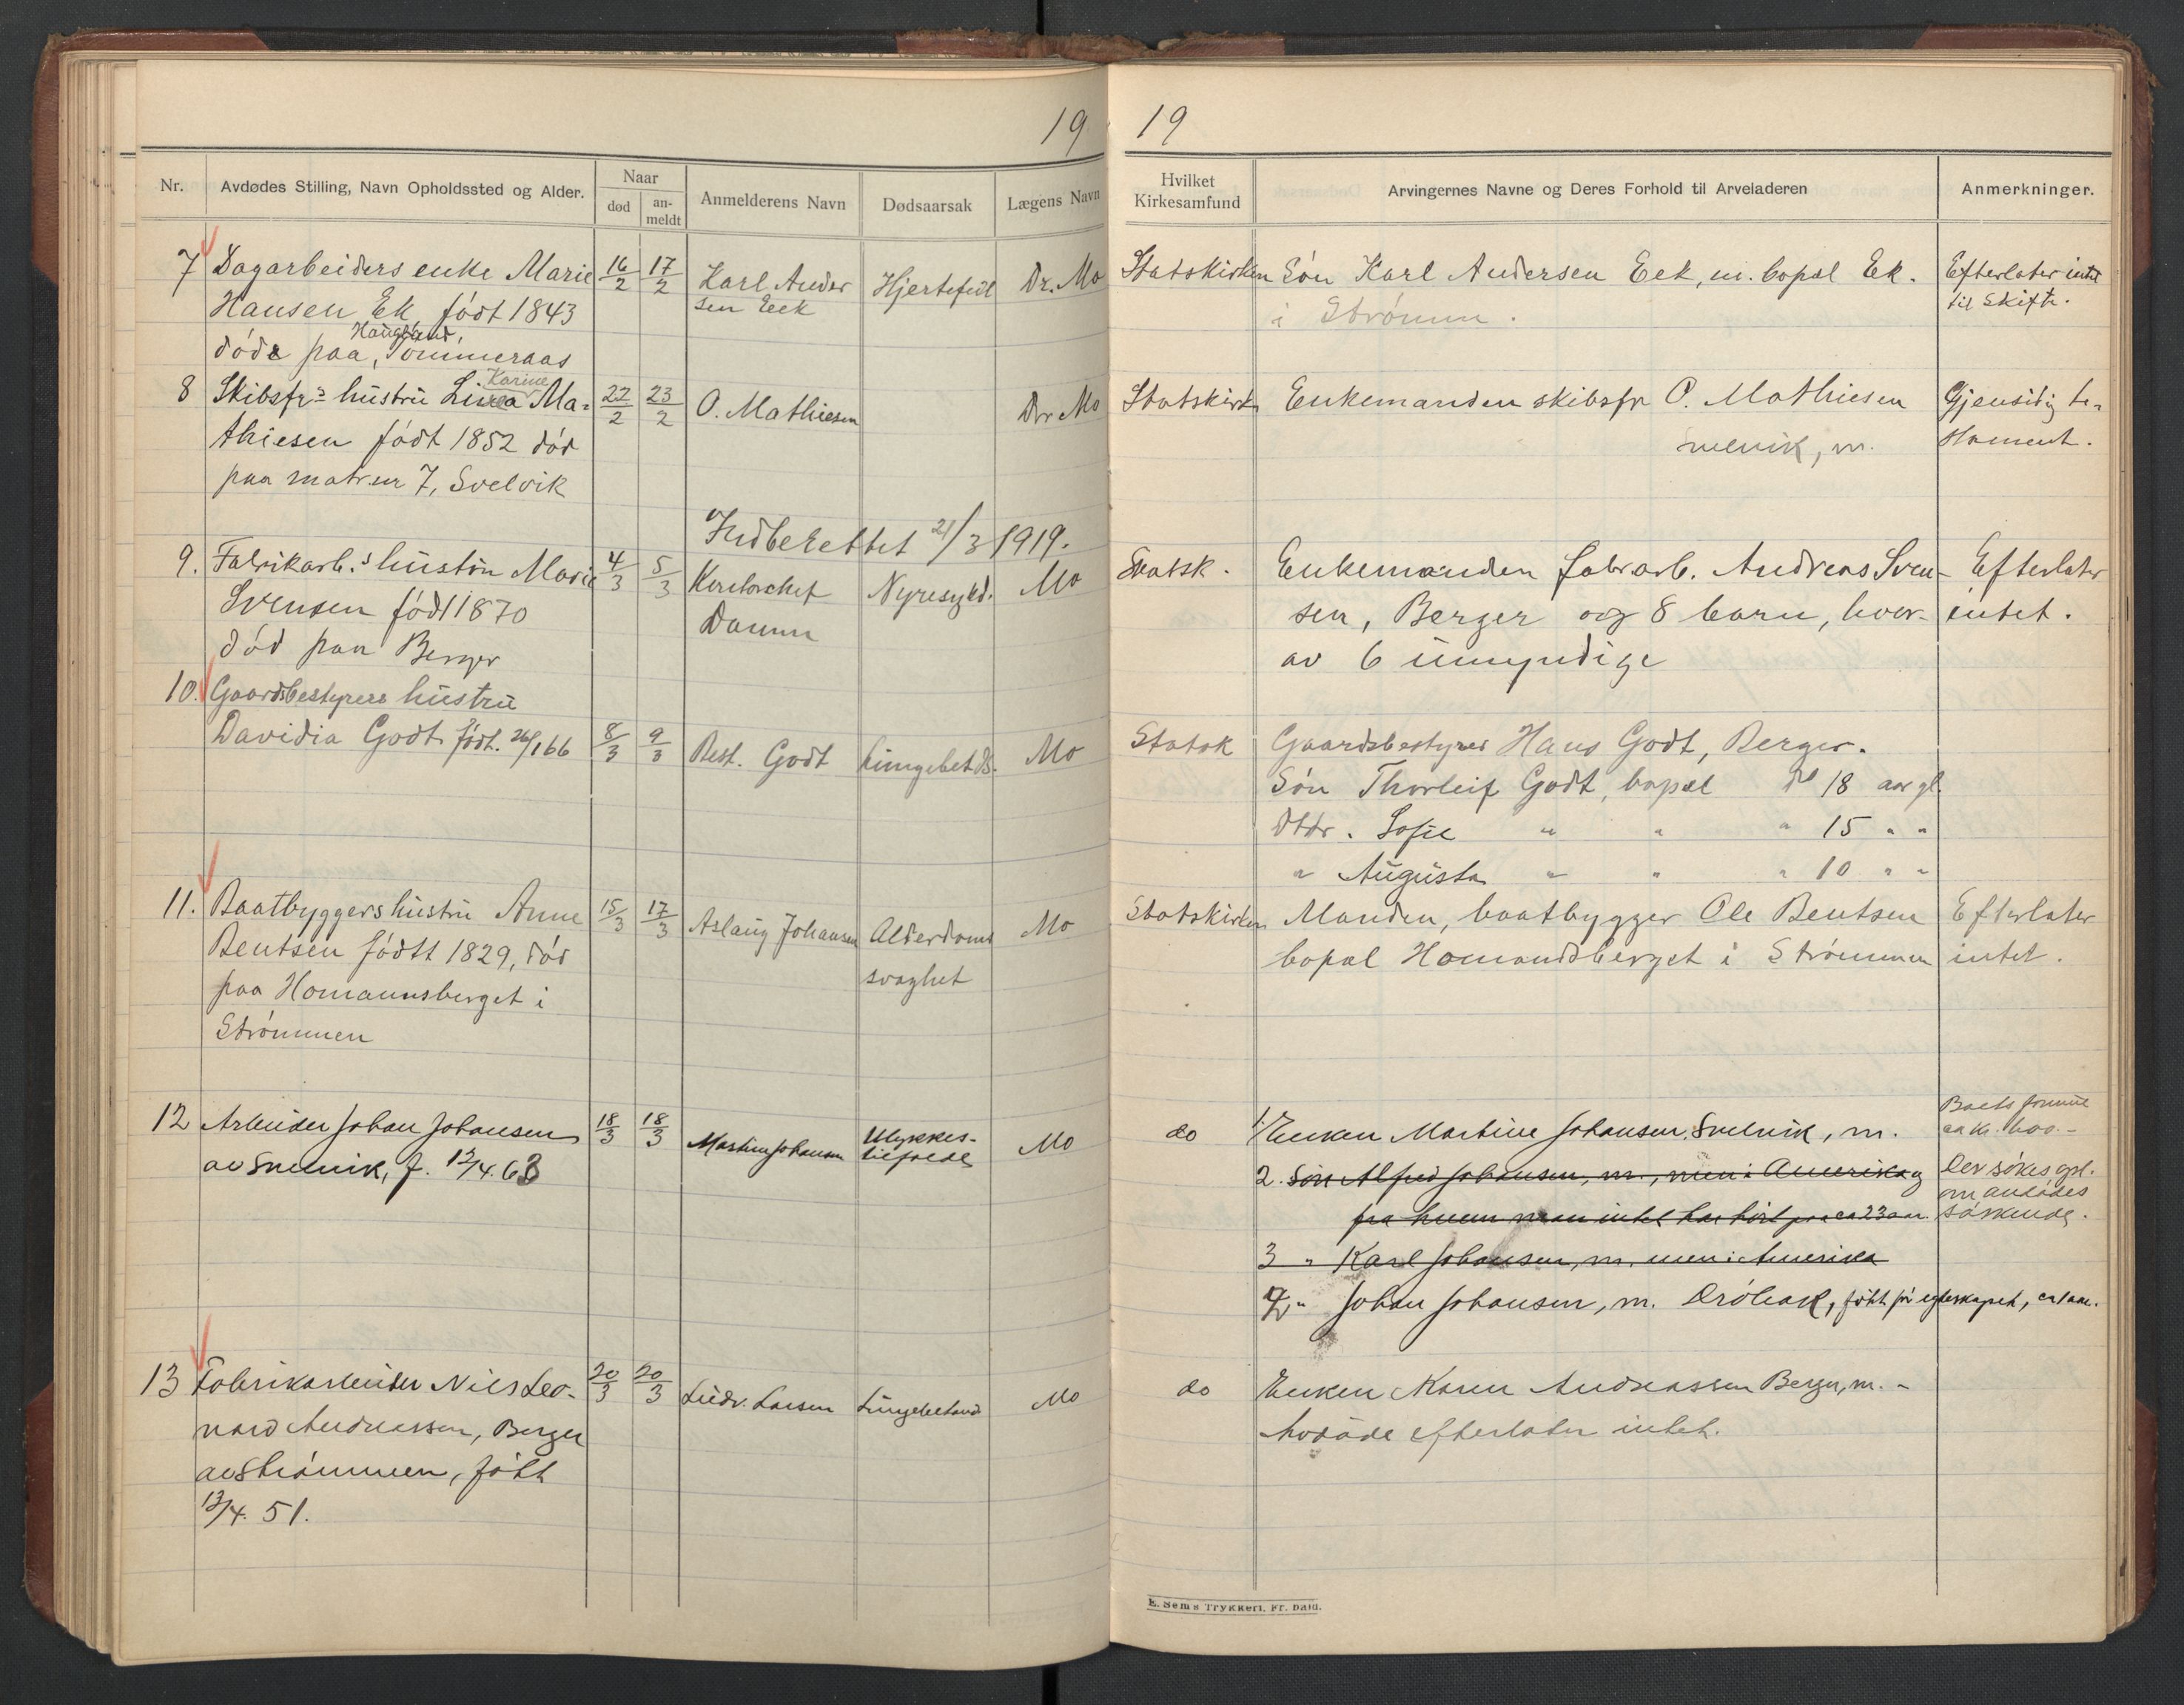 19
Nr. Avdødes Stilling, Navn Opholdssted og Alder. Naar død an-meldt Anmelderens Navn Dødsaarsak Lægens Navn
7 Dagarbeiders enke Marie 16/2 17/2 Karl Ander Hjertefeil Dr. Mo
Hansen Ek født 1843 sen Eek
Haugland,
døde paa, Tømmeraas
Karine
8 Skibsfr's hustru Ma- 22/2 23/2 O. Mathiesen Dr Mo
thiesen født 1852 død
paa matr.nr 7, Svelvik
Indberettet 21/3 1919.
9. Fabrikarb.s hustru Marie 4/3 5/3 Nyresygd. Mo
Svensen født 1870 Damm
død paa Berger
10. Gaardsbestyrers hustru
Davidia Godt født. 26/1 66 8/3 9/3 Best. Godt Lungebet ds. Mo
11. Baatbyggers hustru Anne 15/3 17/3 Aslaug Johansen Alderdoms Mo
Bentsen født 1829, død svaghet
paa Homannsberget i
Strømmen
12 Arbeider Johan Johansen 18/3 18/3 Martin Johansen Ulykkes- Mo
av Svelvik, f. 12/4. 63 tilfælde
13 Fabrikarbeider Nils Leo- 20/3 20/3 Ludv. Larsen Lungebetænd Mo
nard Andreassen, Berger
av Strømmen, født
12/4. 51.
19
Hvilket Kirkesamfund Arvingernes Navne og Deres Forhold til Arveladeren Anmerkninger.
Statskirken Søn Karl Andersen Eek, m. bopæl Ek. Efterlater intet
i Strømm. til skifte.
Statskirk Enkemanden skibsfr O. Mathiesen Gjensidig te-
Svelvik, m. stament.
Statsk. Enkemanden fabrarb. Andreas Sven- Efterlater
sen, Berger og 8 barn, hvor- intet.
av 6 umyndige
Statsk Gaardsbestyrer Hans Godt, Berger.
Søn Thorleif Godt, bopæl do 18 aar gl.
Dtdr. Sofie " " " 15 " "
" Augusta " " " 10 " "
Statskirken Manden, baatbygger Ole Bentsen Efterlater
bopæl Homansberget i Strømmen intet.
do 1. Enken Martine Johansen, Svelvik, m. Boets formue
ca kr. 600.-
2. Søn Alfred Johansen, m., men i Amerika og Der søkes opl.
fra hvem man intet har hørt paa ca 23 aar. om avdødes søskende.
3 " Karl Johansen, m. men i Amerika
4 " Johan Johansen, m. Drøbak, født før egteskapet,
do Enken Maren Andreassen Berger, m. -
Avdøde efterlater intet.
E. Sem's Trykkeri, Fr.hald.